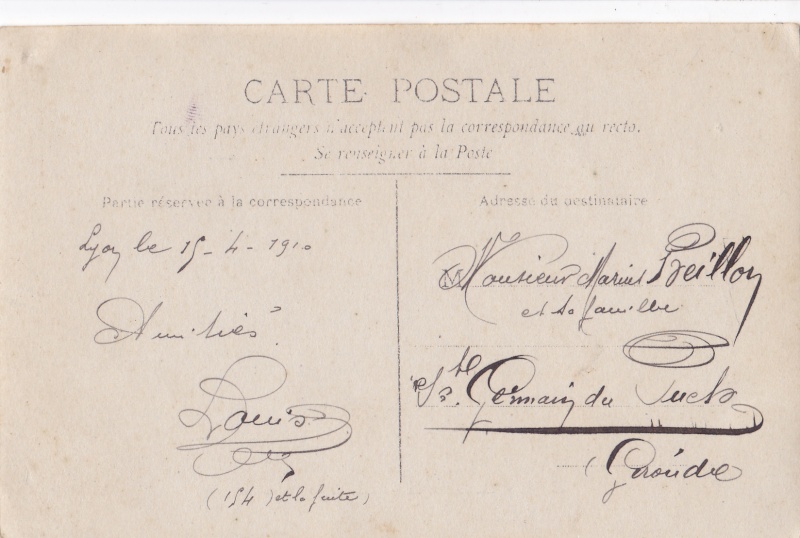 CARTE POSTALE
Tous les pays étrangers n'acceptent pas la correspondance au recto.
Se renseigner à la Poste
Partie réservée à la correspondance
Lyon le 15-4-1910
Amitiés
Louis
(154) et la suite)
Adresse du destinataire
M
Monsieur Marius
et sa famille
St. Germain du Puch
(Gironde